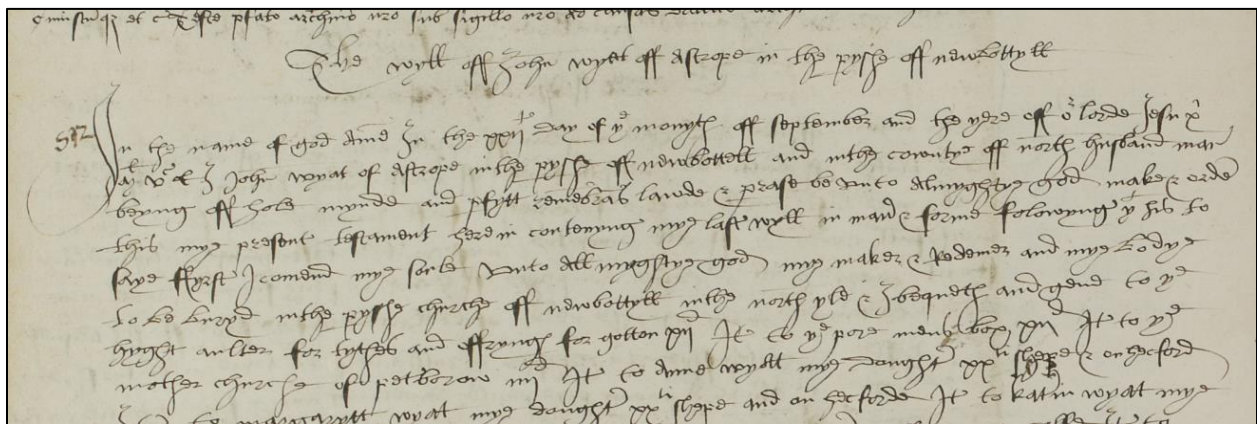 The wyll off John wyatt off Astrope in the pyshe off newbottyll
In the name of god Ame In the xxii day of yͤ monyth off September and the yere off oͬ lorde Jesu
I John wyat of Astrope in the pysshe off newbottell and in the cowntye off north husband man
beyng off hole mynde and pfytt remebras lawde & prase be unto Almyghtye god make & orde
this mye present testament here in contenyng mye last wyll in man & forme folowyng yͭ his to
saye ffyrst I comend mye sowle unto All myghtye god mye maker & Redemer and mye bodye
to be buryd in the pysshe churche off newbottyll in the north yle & I bequeth and geve to yͤ
hyght aulter for tythes and offryngs for gotton xiid It to yͤ pore mens box xiid It to yͤ
mother churche of petborow iiiid It to Anne wyatt mye dought xx shepe & on hecford
to margarytt wyat mye dought xxti shepe and on hecforde It to katrin wyat mye